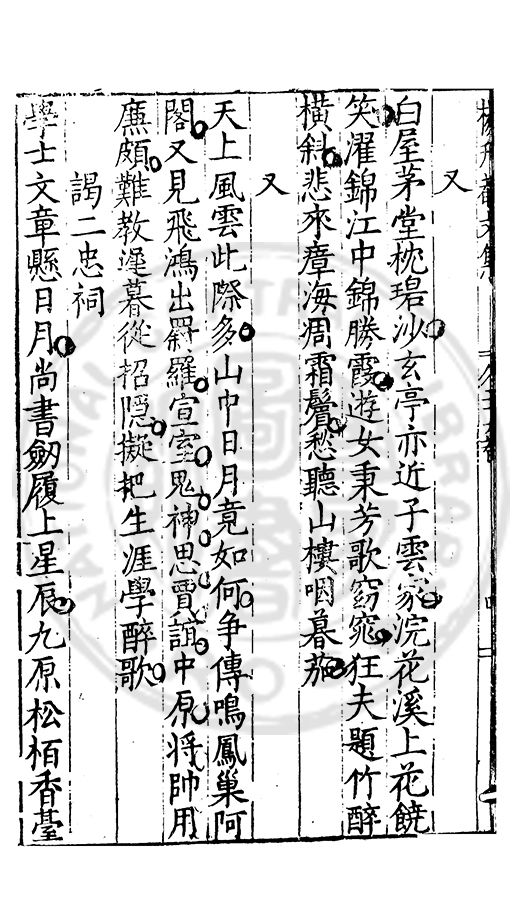 又
白屋茅堂枕碧沙玄亭亦近子雲家浣花溪上花饒
笑濯錦江中錦勝霞遊女秉芳歌窈窕狂夫題竹醉
橫斜悲來瘴海凋霜鬢愁聽山樓咽暮笳
又
天上風雲此際多山中日月竟如何爭傳鳴鳳巢阿
閣又見飛鴻出罻羅宣室鬼神思賈誼中原將帥用
廉頗難教遲暮從招隱擬把生涯學醉歌
謁二忠祠
學士文章懸日月尚書劒履上星辰九原松栢香臺